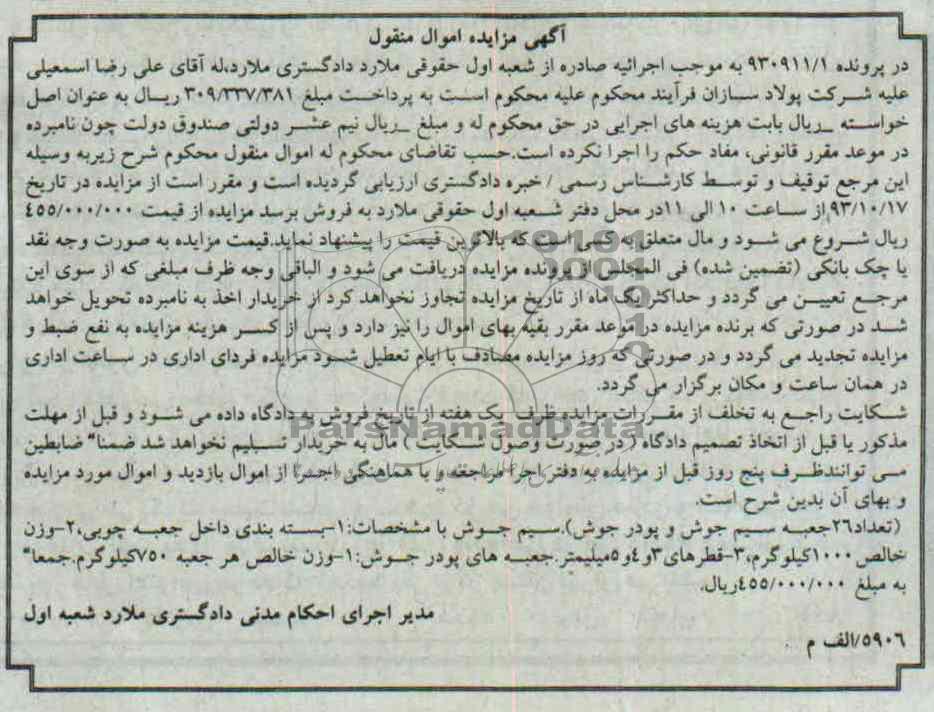 آگهی مزایده اموال منقول
در پرونده ۹۳۰۹۱۱/۱ به موجب اجرائیه صادره از شعبه اول حقوقی ملارد دادگستری ملارد،له آقای علی رضا اسمعیلی
علیه شرکت پولاد سازان فرآیند محکوم علیه محکوم است به پرداخت مبلغ ۳۰۹/۳۳۷/۳۸۱ ریال به عنوان اصل
خواسته _ریال بابت هزینه های اجرایی در حق محکوم له و مبلغ _ریال نیم عشر دولتی صندوق دولت چون نامبرده
در موعد مقرر قانونی، مفاد حکم را اجرا نکرده است.حسب تقاضای محکوم له اموال منقول محکوم شرح زیربه وسیله
این مرجع توقیف و توسط کارشناس رسمی / خبره دادگستری ارزیابی گردیده است و مقرر است از مزایده در تاریخ
۹۳/۱۰/۱۷از ساعت ۱۰ الی ۱۱در محل دفتر شعبه اول حقوقی ملارد به فروش برسد مزایده از قیمت ۴۵۵/۰۰۰/۰۰۰
ریال شروع می شود و مال متعلق به کسی است که بالاترین قیمت را پیشنهاد نماید.قیمت مزایده به صورت وجه نقد
یا چک بانکی (تضمین شده) فی المجلس از برونده مزایده دریافت می شود و الباقی وجه ظرف مبلغی که از سوی این
مرجع تعیین می گردد و حداکثر یک ماه از تاریخ مزایده تجاوز نخواهد کرد از خریدار اخذ به نامبرده تحویل خواهد
شد در صورتی که برنده مزایده در موعد مقرر بقیه بهای اموال را نیز دارد و پس از کسر هزینه مزایده به نفع ضبط و
مزایده تجدید می گردد و در صورتی که روز مزایده مصادف با ایام تعطیل شود مزایده فردای اداری در ساعت اداری
در همان ساعت و مکان برگزار می گردد.
شکایت راجع به تخلف از مقررات مزایده ظرف یک هفته از تاریخ فروش به دادگاه داده می شود و قبل از مهلت
مذکور یا قبل از اتخاذ تصمیم دادگاه ( در صورت وصول شکایت ) مال به خریدار تسلیم نخواهد شد ضمنا" ضابطین
می توانندظرف پنج روز قبل از مزایده به دفتر اجرا مراجعه و با هماهنگی اجرا از اموال بازدید و اموال مورد مزایده
و بهای آن بدین شرح است.
(تعداد۲۶جعبه سیم جوش و پودر جوش).سیم جوش با مشخصات:۱-بسته بندی داخل جعبه چوبی،۲-وزن
خالص ۱۰۰۰کیلوگرم،۳-قطرهای۳و٤و٥میلیمتر.جعبه های پودر جوش:۱-وزن خالص هر جعبه ۷۵۰کیلوگرم.جمعا"
به مبلغ ۴۵۵/۰۰۰/۰۰۰ریال.
مدیر اجرای احکام مدنی دادگستری ملارد شعبه اول
۵۹۰۶/الف م
ParsNamadData